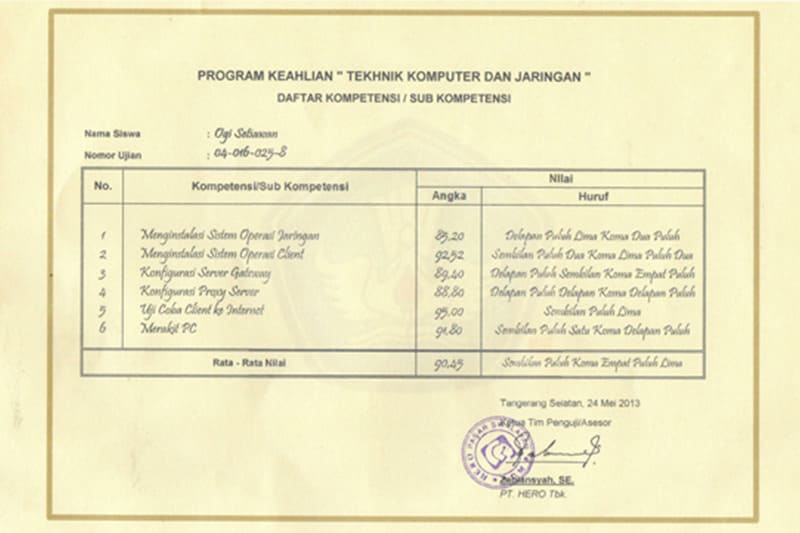 PROGRAM KEAHLIAN " TEKHNIK KOMPUTER DAN JARINGAN "
DAFTAR KOMPETENSI / SUB KOMPETENSI
Nama Siswa : Ogi Setiawan
Nomor Ujian : 04-016-025-8
No. Kompetensi/Sub Kompetensi Nilai
Angka Huruf
1 Menginstalasi Sistem Operasi Jaringan 85,20 Delapan Puluh Lima Koma Dua Puluh
2 Menginstalasi Sistem Operasi Client 92,52 Sembilan Puluh Dua Koma Lima Puluh Dua
3 Konfigurasi Server Gateway 89,40 Delapan Puluh Sembilan Koma Empat Puluh
4 Konfigurasi Proxy Server 88,80 Delapan Puluh Delapan Koma Delapan Puluh
5 Uji Coba Client ke Internet 95,00 Sembilan Puluh Lima
6 Merakit PC 91,80 Sembilan Puluh Satu Koma Delapan Puluh
Rata - Rata Nilai 90,45 Sembilan Puluh Koma Empat Puluh Lima
Tangerang Selatan, 24 Mei 2013
Ketua Tim Penguji/Asesor
HERO PASAR
Febiansyah, SE.
PT. HERO Tbk.